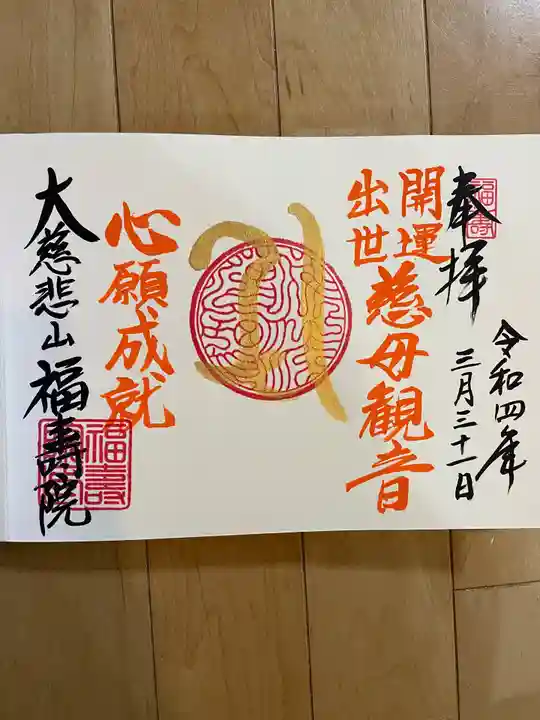 奉拝
福壽
令和四年
三月三十一日
開運
出世
慈母観音
心願成就
大慈悲山福壽院
福壽